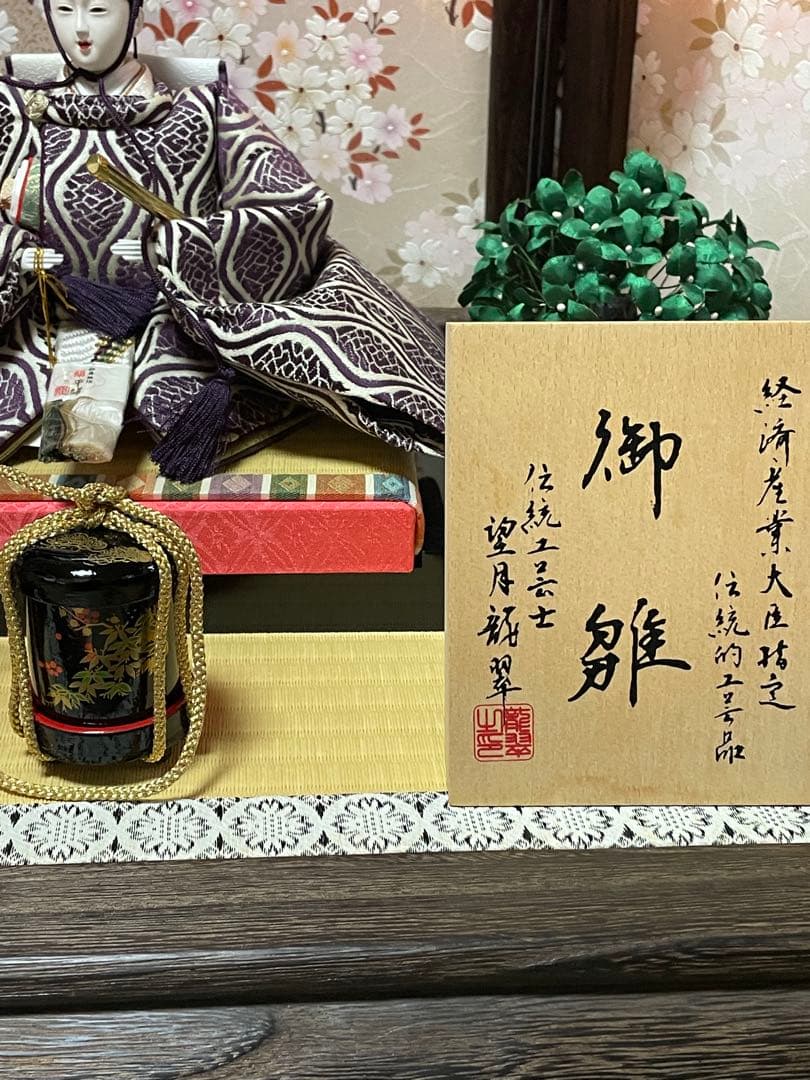 経済産業大臣指定
伝統的工芸品
御雛
伝統工芸士
望月龍翠
龍翠
之印